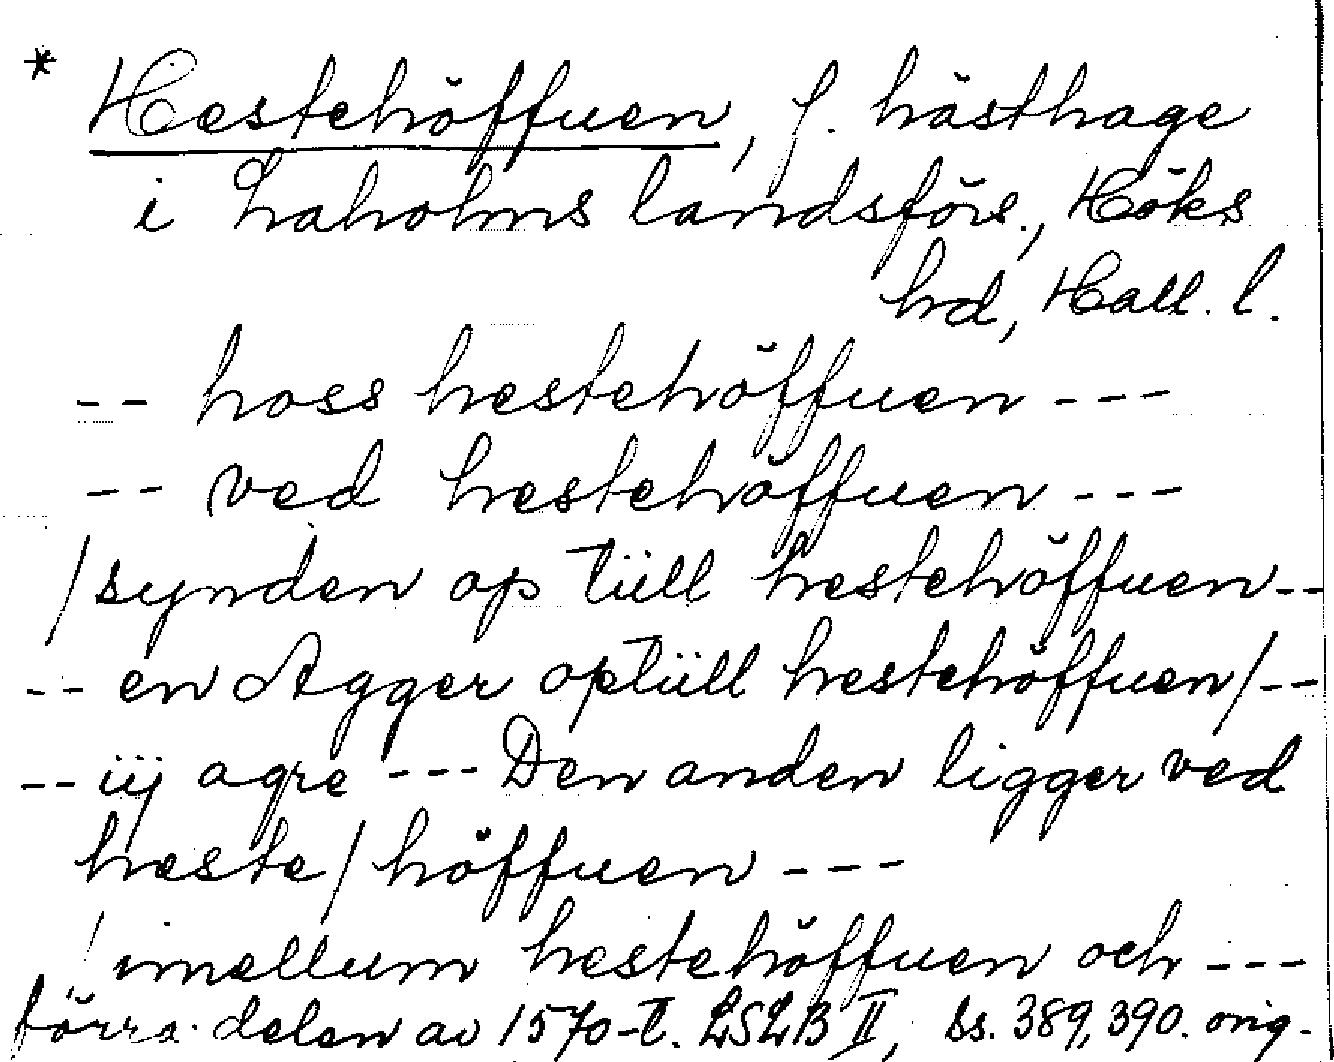 * Hestehöffuen, f. hästhage
i Laholms landsförs., Höks
hd, Hall. l.
-- hoss hestehöffuen ---
-- ved hestehöffuen ---
/synden op tüll hestehöffuen--
-- en Agger optüll hestehöffuen/--
-- iij agre --- Den anden ligger ved
heste/höffuen ---
/imellum hestehöffuen och ---
förra delen av 1570-t. LSLB II, ss. 389, 390. orig.